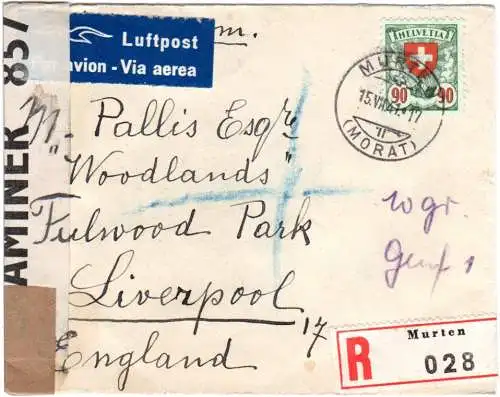 Luftpost
avion - Via aerea
m.
HELVETIA
90 90
MURTEN
15.VII.41-17
(MORAT)
AMINER 857
M. Pallis Esqr
"Woodlands"
Fulwood Park
Liverpool
17
England
10 gr.
Genf 1
R
Murten
028